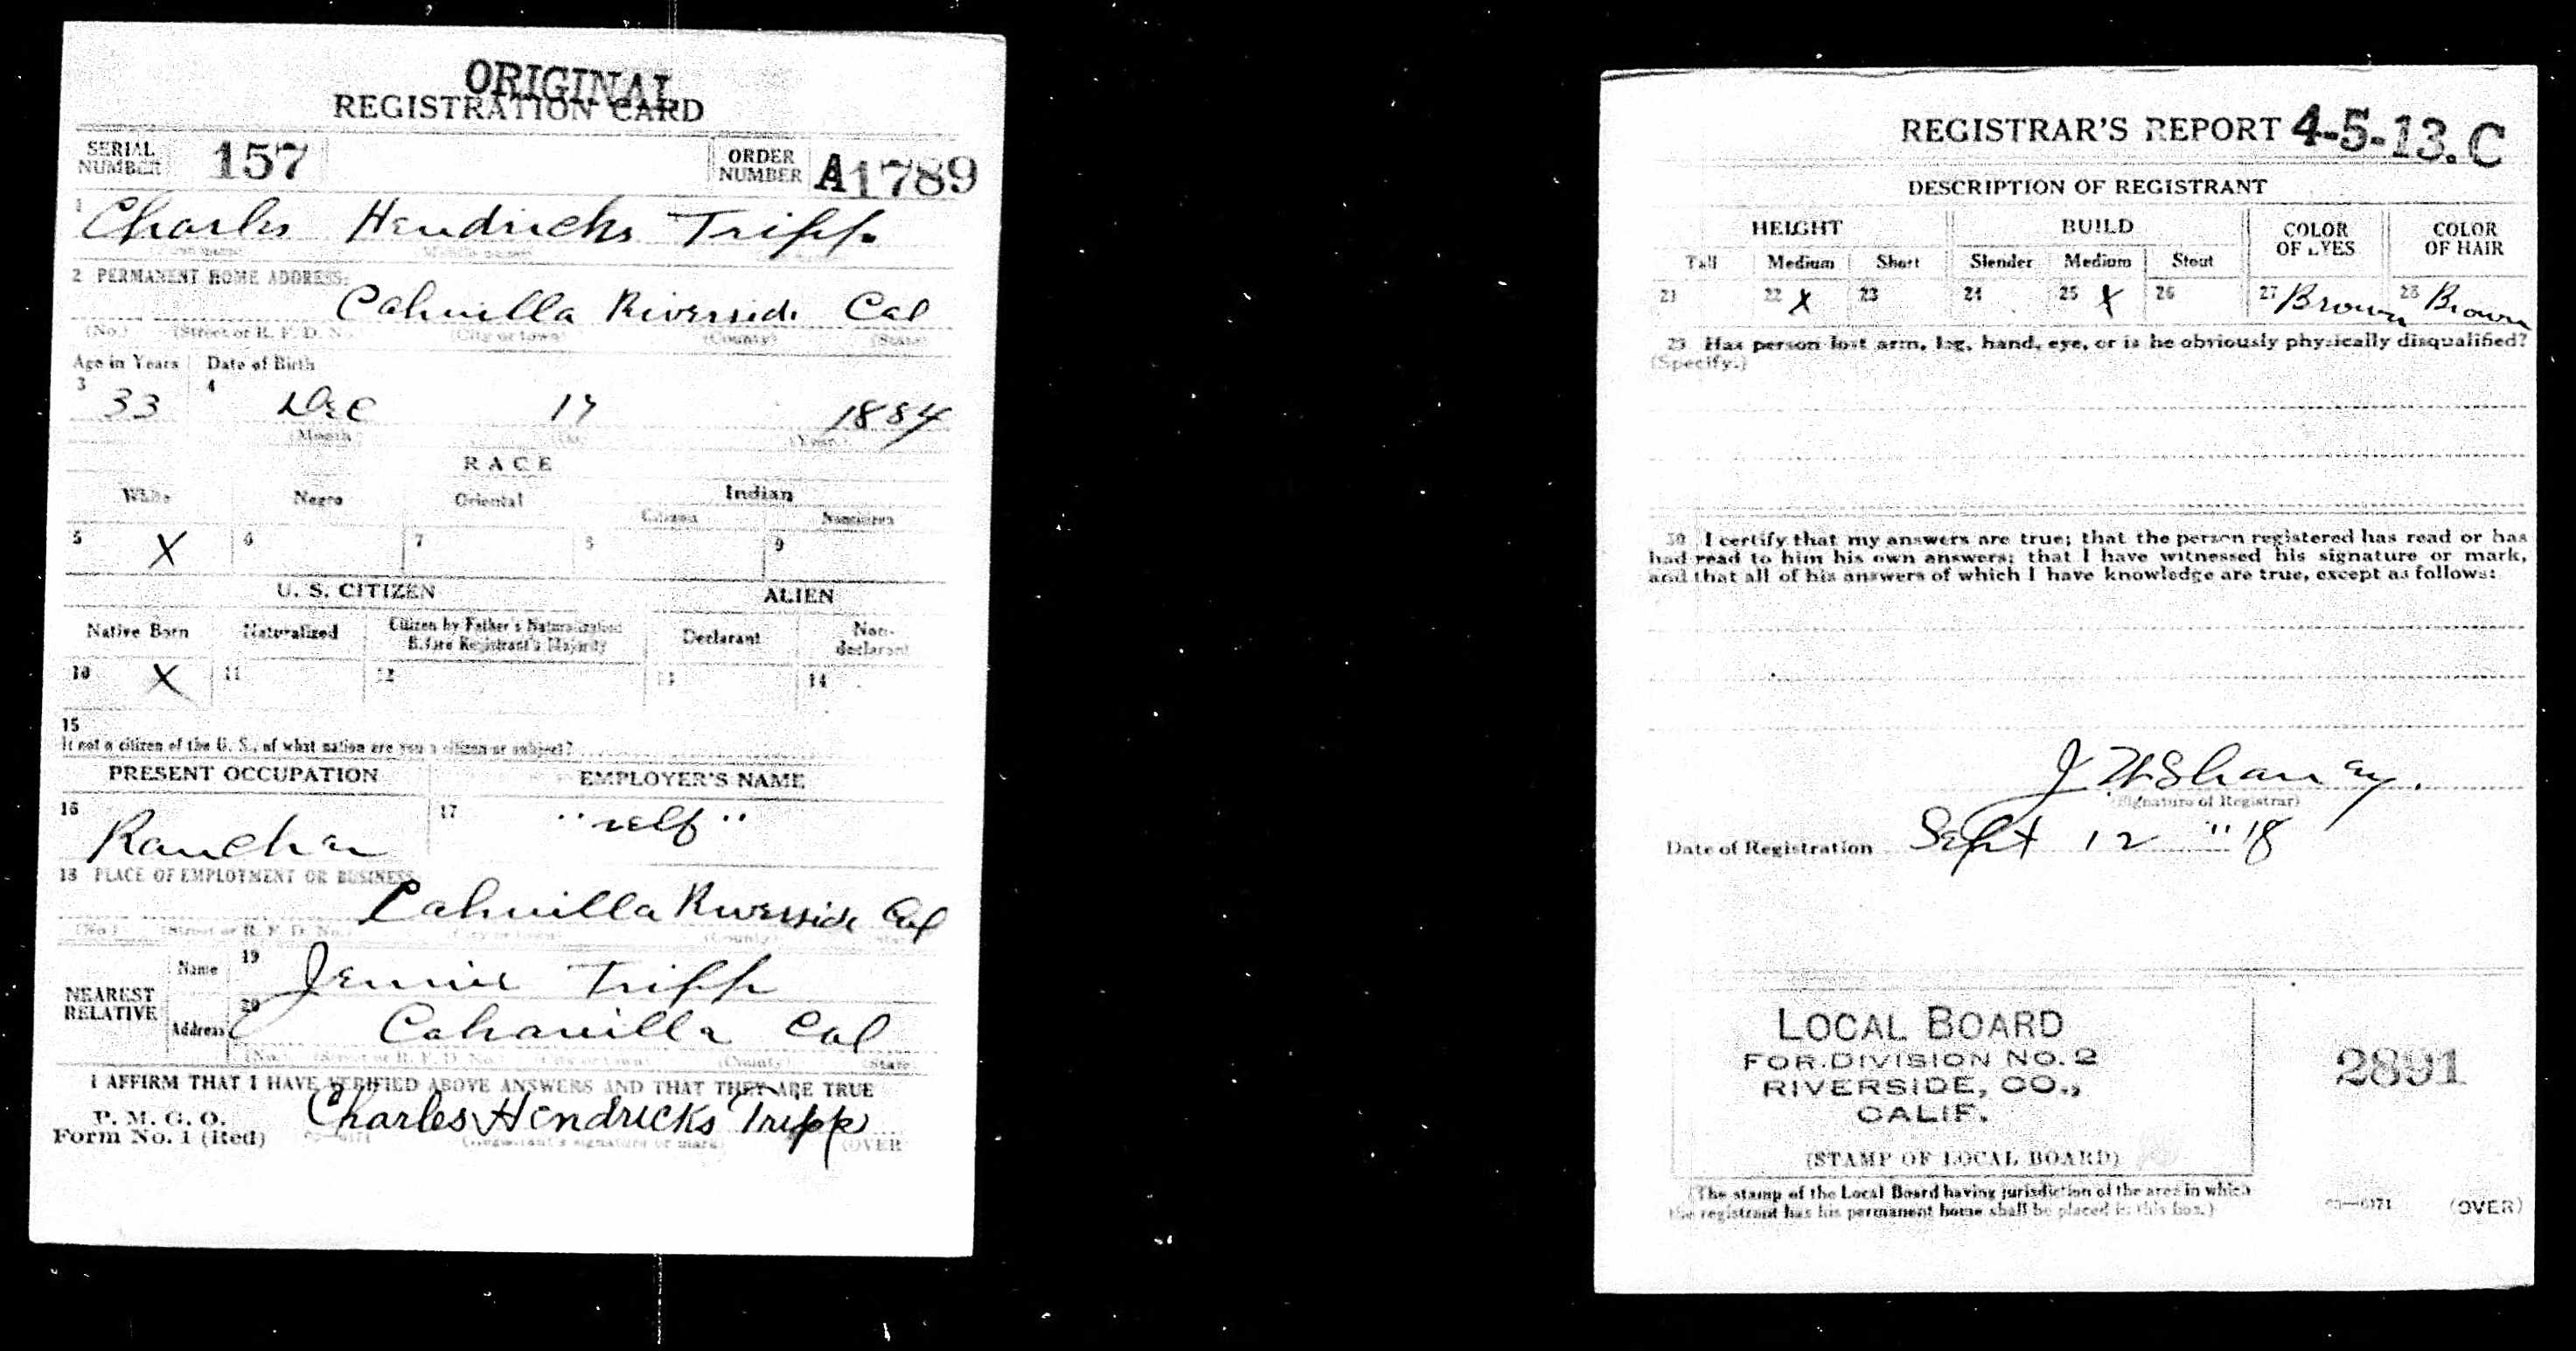 ORIGINAL
REGISTRATION CARD
SERIAL NUMBER 157 ORDER NUMBER A1789
1 Charles Hendricks Tripp.
2 PERMANENT HOME ADDRESS:
Cahuilla Riverside Cal
(No.) (Street or R. F. D. No.) (City or town) (County) (State)
Age in Years Date of Birth
3 33 4 Dec 17 1884
(Month) (Year)
RACE
White Negro Oriental Indian
Citizen Noncitizen
5 X 6 7 8 9
U. S. CITIZEN ALIEN
Native Born Naturalized Citizen by Father's Naturalization Before Registrant's Majority Declarant Non-declarant
10 X 11 12 13 14
15
If not a citizen of the U. S., of what nation are you a citizen or subject?
PRESENT OCCUPATION EMPLOYER'S NAME
16 Rancher 17 "self"
18 PLACE OF EMPLOYMENT OR BUSINESS:
Cahuilla Riverside Cal
(No.) (Street or R. F. D. No.) (City or town) (County) (State)
NEAREST RELATIVE Name 19 Jennie Tripp
Address 20 Cahauilla Cal
(No.) (Street or R. F. D. No.) (City or town) (County) (State)
I AFFIRM THAT I HAVE VERIFIED ABOVE ANSWERS AND THAT THEY ARE TRUE
P. M. G. O.
Form No. 1 (Red) Charles Hendricks Tripp
(Registrant's signature or mark) (OVER)
REGISTRAR'S REPORT 4-5-13. C
DESCRIPTION OF REGISTRANT
HEIGHT BUILD COLOR OF EYES COLOR OF HAIR
Tall Medium Short Slender Medium Stout
21 22 X 23 24 25 X 26 27 Brown 28 Brown
29 Has person lost arm, leg, hand, eye, or is he obviously physically disqualified?
(Specify.)
30 I certify that my answers are true; that the person registered has read or has
had read to him his own answers; that I have witnessed his signature or mark,
and that all of his answers of which I have knowledge are true, except as follows:
(Signature of Registrar)
Date of Registration Sept 12 "18
LOCAL BOARD
FOR DIVISION NO. 2
RIVERSIDE, CO.,
CALIF.
2891
(STAMP OF LOCAL BOARD)
(The stamp of the Local Board having jurisdiction of the area in which
the registrant has his permanent home shall be placed in this box.)
03—6171 (OVER)